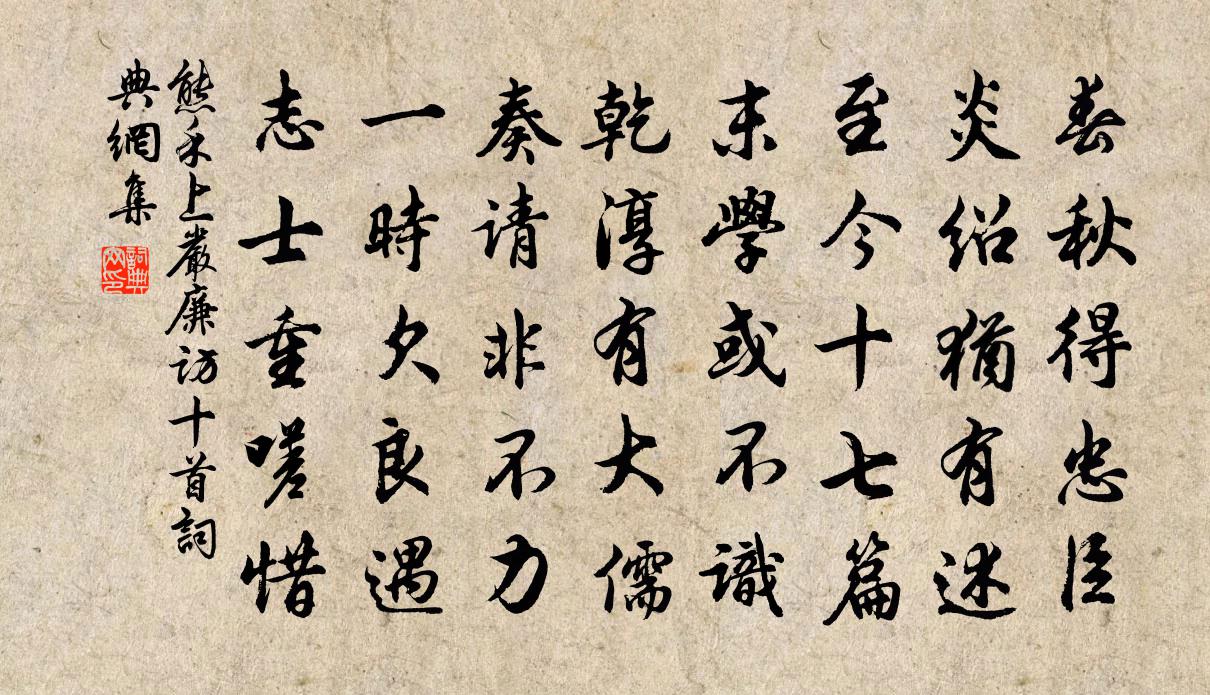 春秋得忠臣
炎绍猶有述
至今十七篇
末學或不識
乾淳有大儒
奏请非不力
一時欠良遇
志士重嗟惜
熊禾上嚴廉访十首詞
典網集
詞典